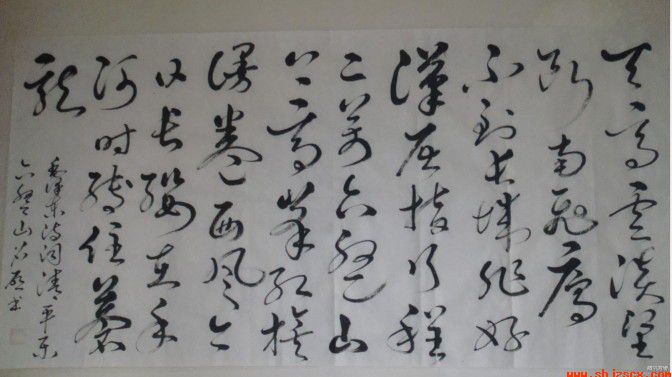 天高雲淡望
斷南飛雁
不到長城非好
漢屈指行程
二萬六盤山
上高峰紅旗
漫卷西風今
日長纓在手
何时縛住蒼
龍
毛澤東詩詞清平樂
六盤山 书